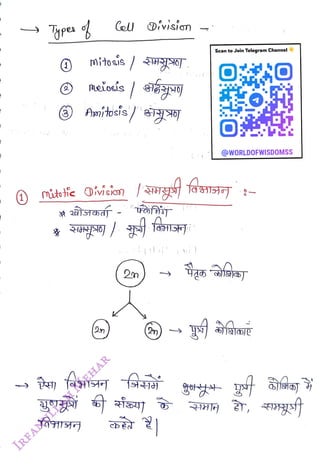 → Types of Cell Division -
① Mitosis / समसूत्रण
② Meiosis / अर्द्धसूत्रण
③ Amitosis / असूत्रण
Scan to Join Telegram Channel 👇
@WORLDOFWISDOMSS
① Mitotic Division / समसूत्री विभाजन :-
* खोजकर्ता - फ्लेमिंग
* समसूत्रण / सूत्री विभाजन
2n → पैतृक कोशिका
2n 2n → पुत्री कोशिकाएँ
→ ऐसा विभाजन जिसमें पुत्री कोशिका में
गुणसूत्रों की संख्या के समान हो, समसूत्री
विभाजन कहते है।